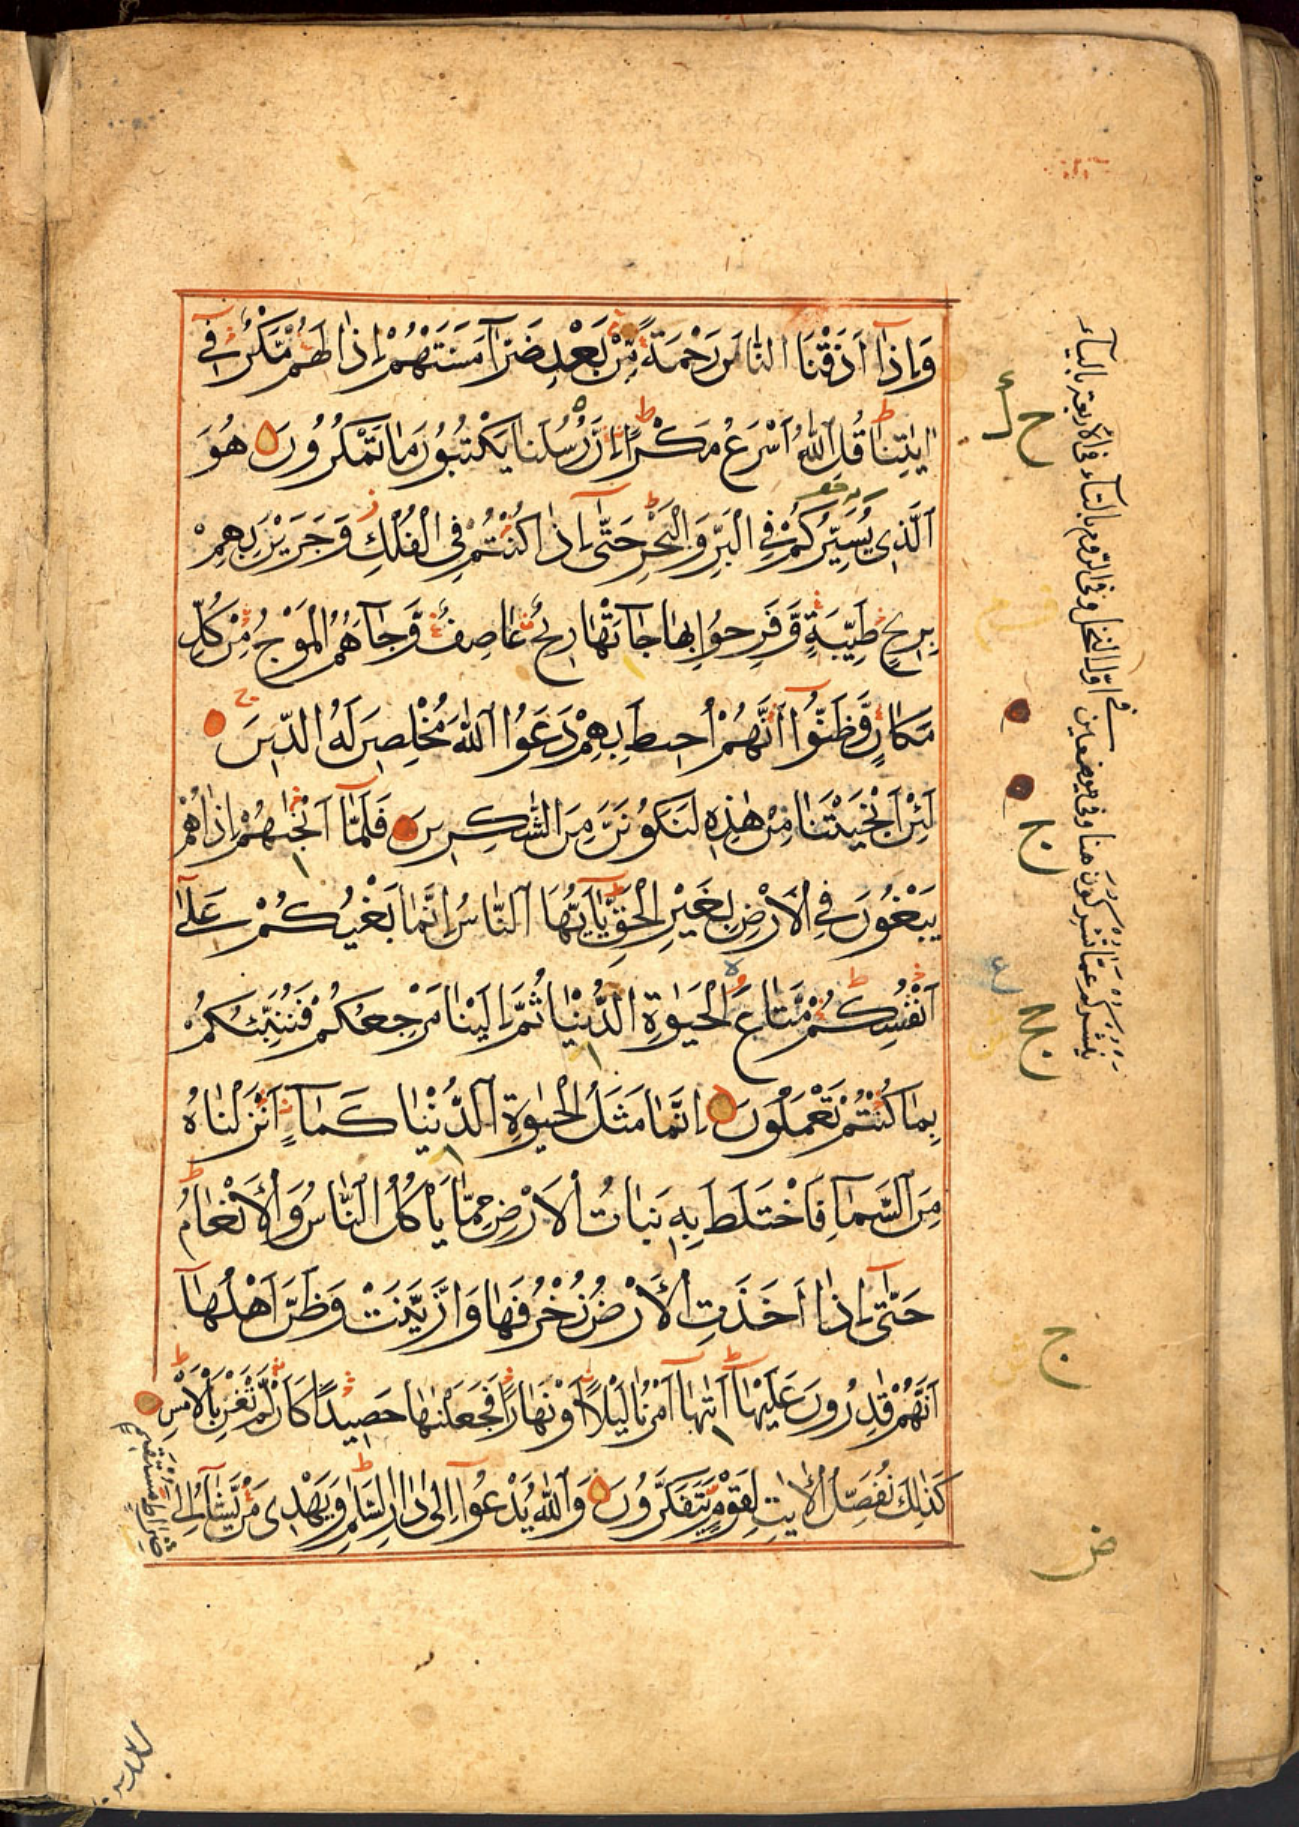 وَاِذَا اَذَقْنَا النَّاسَ رَحْمَةً مِّنْ بَعْدِ ضَرَّآءَ مَسَّتْهُمْ اِذَا لَهُمْ مَّكْرٌ فِىْ
اٰيَاتِنَا قُلِ اللّٰهُ اَسْرَعُ مَكْرًا اِنَّ رُسُلَنَا يَكْتُبُوْنَ مَا تَمْكُرُوْنَ هُوَ
الَّذِى يُسَيِّرُكُمْ فِى الْبَرِّ وَالْبَحْرِ حَتّٰى اِذَا كُنْتُمْ فِى الْفُلْكِ وَجَرَيْنَ بِهِمْ
بِرِيْحٍ طَيِّبَةٍ وَّفَرِحُوْا بِهَا جَآءَتْهَا رِيْحٌ عَاصِفٌ وَّجَآءَهُمُ الْمَوْجُ مِنْ كُلِّ
مَكَانٍ وَّظَنُّوْا اَنَّهُمْ اُحِيْطَ بِهِمْ دَعَوُا اللّٰهَ مُخْلِصِيْنَ لَهُ الدِّيْنَ
لَئِنْ اَنْجَيْتَنَا مِنْ هٰذِهٖ لَنَكُوْنَنَّ مِنَ الشّٰكِرِيْنَ فَلَمَّآ اَنْجٰىهُمْ اِذَا هُمْ
يَبْغُوْنَ فِى الْاَرْضِ بِغَيْرِ الْحَقِّ يٰاَيُّهَا النَّاسُ اِنَّمَا بَغْيُكُمْ عَلٰٓى
اَنْفُسِكُمْ مَّتَاعَ الْحَيٰوةِ الدُّنْيَا ثُمَّ اِلَيْنَا مَرْجِعُكُمْ فَنُنَبِّئُكُمْ
بِمَا كُنْتُمْ تَعْمَلُوْنَ اِنَّمَا مَثَلُ الْحَيٰوةِ الدُّنْيَا كَمَآءٍ اَنْزَلْنَاهُ
مِنَ السَّمَآءِ فَاخْتَلَطَ بِهٖ نَبَاتُ الْاَرْضِ مِمَّا يَأْكُلُ النَّاسُ وَالْاَنْعَامُ
حَتّٰٓى اِذَا اَخَذَتِ الْاَرْضُ زُخْرُفَهَا وَازَّيَّنَتْ وَظَنَّ اَهْلُهَآ
اَنَّهُمْ قَادِرُوْنَ عَلَيْهَآ اَتٰىهَآ اَمْرُنَا لَيْلًا اَوْ نَهَارًا فَجَعَلْنٰهَا حَصِيْدًا كَاَنْ لَّمْ تَغْنَ بِالْاَمْسِ
كَذٰلِكَ نُفَصِّلُ الْاٰيٰتِ لِقَوْمٍ يَّتَفَكَّرُوْنَ وَاللّٰهُ يَدْعُوْٓا اِلٰى دَارِ السَّلٰمِ وَيَهْدِىْ مَنْ يَّشَآءُ اِلٰى
صِرَاطٍ مُّسْتَقِيْمٍ
يشركون عما تشركون هنا وفى موضعين
فى اول النحل وفى الروم بالتاء فى الاربعة بالياء
ح
ج
ج
ض